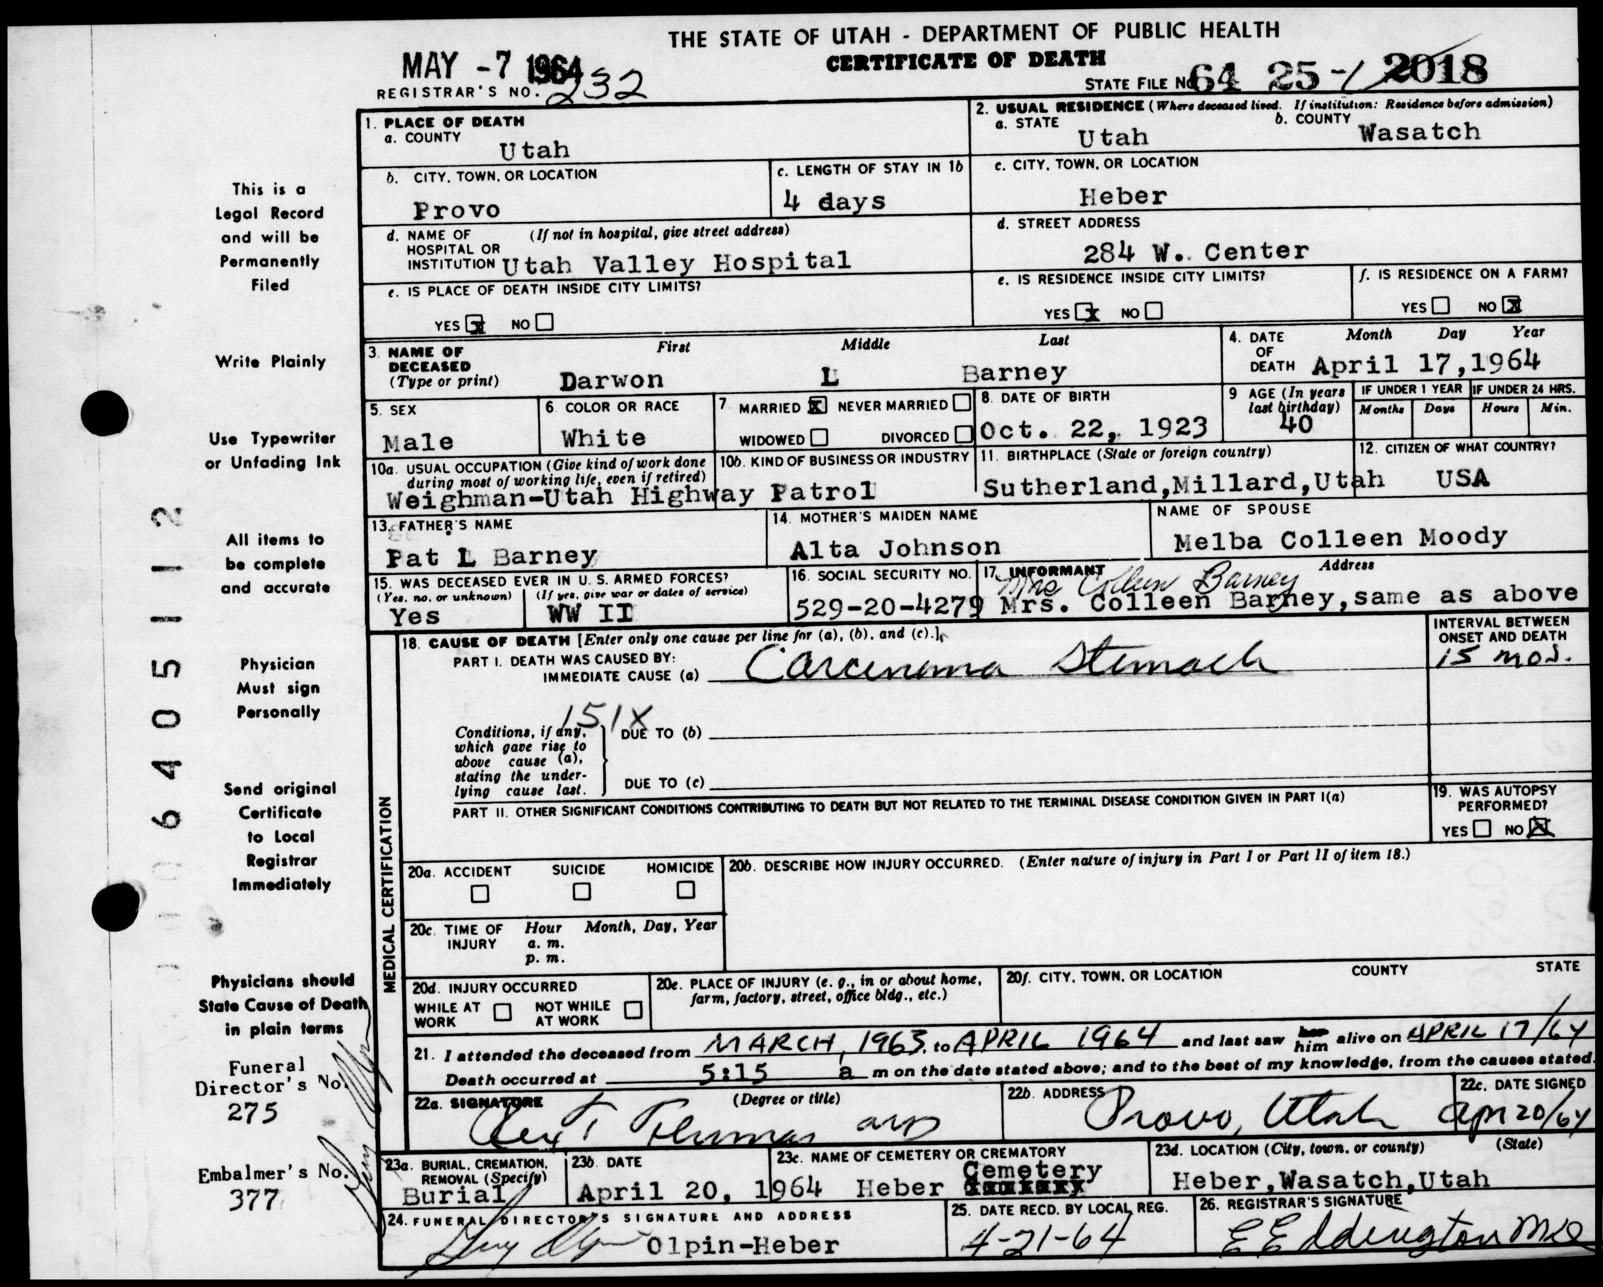 THE STATE OF UTAH - DEPARTMENT OF PUBLIC HEALTH
CERTIFICATE OF DEATH
MAY -7 1964
REGISTRAR'S NO. 232
STATE FILE NO. 64 25-1 2018
1. PLACE OF DEATH
a. COUNTY
Utah
2. USUAL RESIDENCE (Where deceased lived. If institution: Residence before admission)
a. STATE Utah b. COUNTY Wasatch
b. CITY, TOWN, OR LOCATION
Provo
c. LENGTH OF STAY IN 1b
4 days
c. CITY, TOWN, OR LOCATION
Heber
d. NAME OF HOSPITAL OR INSTITUTION (If not in hospital, give street address)
Utah Valley Hospital
d. STREET ADDRESS
284 W. Center
e. IS PLACE OF DEATH INSIDE CITY LIMITS?
YES x NO
e. IS RESIDENCE INSIDE CITY LIMITS?
YES x NO
f. IS RESIDENCE ON A FARM?
YES NO x
3. NAME OF DECEASED (Type or print)
First Middle Last
Darwon L Barney
4. DATE OF DEATH Month Day Year
April 17,1964
5. SEX
Male
6. COLOR OR RACE
White
7. MARRIED x NEVER MARRIED
WIDOWED DIVORCED
8. DATE OF BIRTH
Oct. 22, 1923
9 AGE (In years last birthday)
40
IF UNDER 1 YEAR
Months Days
IF UNDER 24 HRS.
Hours Min.
10a. USUAL OCCUPATION (Give kind of work done during most of working life, even if retired)
10b. KIND OF BUSINESS OR INDUSTRY
Weighman-Utah Highway Patrol
11. BIRTHPLACE (State or foreign country)
Sutherland,Millard,Utah
12. CITIZEN OF WHAT COUNTRY?
USA
13. FATHER'S NAME
Pat L Barney
14. MOTHER'S MAIDEN NAME
Alta Johnson
NAME OF SPOUSE
Melba Colleen Moody
15. WAS DECEASED EVER IN U. S. ARMED FORCES?
(Yes, no, or unknown) (If yes, give war or dates of service)
Yes WW II
16. SOCIAL SECURITY NO.
529-20-4279
17. INFORMANT Address
Mrs Colleen Barney
Mrs. Colleen Barney,same as above
18. CAUSE OF DEATH [Enter only one cause per line for (a), (b), and (c).]
PART I. DEATH WAS CAUSED BY:
IMMEDIATE CAUSE (a) Carcinoma Stomach
INTERVAL BETWEEN ONSET AND DEATH
15 mos.
151X
Conditions, if any, which gave rise to above cause (a), stating the underlying cause last.
DUE TO (b)
DUE TO (c)
PART II. OTHER SIGNIFICANT CONDITIONS CONTRIBUTING TO DEATH BUT NOT RELATED TO THE TERMINAL DISEASE CONDITION GIVEN IN PART I(a)
19. WAS AUTOPSY PERFORMED?
YES NO X
MEDICAL CERTIFICATION
20a. ACCIDENT SUICIDE HOMICIDE
20b. DESCRIBE HOW INJURY OCCURRED. (Enter nature of injury in Part I or Part II of item 18.)
20c. TIME OF INJURY Hour Month, Day, Year
a. m.
p. m.
20d. INJURY OCCURRED
WHILE AT WORK NOT WHILE AT WORK
20e. PLACE OF INJURY (e. g., in or about home, farm, factory, street, office bldg., etc.)
20f. CITY, TOWN, OR LOCATION COUNTY STATE
21. I attended the deceased from MARCH, 1963, to APRIL 1964 and last saw her him alive on APRIL 17/64
Death occurred at 5:15 a m on the date stated above; and to the best of my knowledge, from the causes stated.
22a. SIGNATURE (Degree or title)
22b. ADDRESS
Provo, Utah
22c. DATE SIGNED
Apr 20/64
23a. BURIAL, CREMATION, REMOVAL (Specify)
Burial
23b. DATE
April 20, 1964
23c. NAME OF CEMETERY OR CREMATORY
Heber Cemetery
23d. LOCATION (City, town, or county) (State)
Heber,Wasatch,Utah
24. FUNERAL DIRECTOR'S SIGNATURE AND ADDRESS
Olpin-Heber
25. DATE RECD. BY LOCAL REG.
4-21-64
26. REGISTRAR'S SIGNATURE
E E Eddington
This is a
Legal Record
and will be
Permanently
Filed
Write Plainly
Use Typewriter
or Unfading Ink
All items to
be complete
and accurate
Physician
Must sign
Personally
Send original
Certificate
to Local
Registrar
Immediately
Physicians should
State Cause of Death
in plain terms
Funeral
Director's No.
275
Embalmer's No.
377